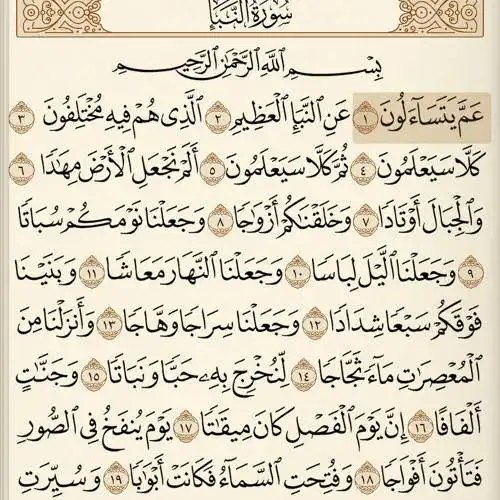 سُورَةُ النَّبَإِ
بِسْمِ اللَّهِ الرَّحْمَٰنِ الرَّحِيمِ
عَمَّ يَتَسَآءَلُونَ ١ عَنِ النَّبَإِ الْعَظِيمِ ٢ الَّذِى هُمْ فِيهِ مُخْتَلِفُونَ ٣
كَلَّا سَيَعْلَمُونَ ٤ ثُمَّ كَلَّا سَيَعْلَمُونَ ٥ أَلَمْ نَجْعَلِ الْأَرْضَ مِهَٰدًا ٦
وَالْجِبَالَ أَوْتَادًا ٧ وَخَلَقْنَٰكُمْ أَزْوَٰجًا ٨ وَجَعَلْنَا نَوْمَكُمْ سُبَاتًا
٩ وَجَعَلْنَا الَّيْلَ لِبَاسًا ١٠ وَجَعَلْنَا النَّهَارَ مَعَاشًا ١١ وَبَنَيْنَا
فَوْقَكُمْ سَبْعًا شِدَادًا ١٢ وَجَعَلْنَا سِرَاجًا وَهَّاجًا ١٣ وَأَنزَلْنَا مِنَ
الْمُعْصِرَٰتِ مَآءً ثَجَّاجًا ١٤ لِّنُخْرِجَ بِهِۦ حَبًّا وَنَبَاتًا ١٥ وَجَنَّٰتٍ
أَلْفَافًا ١٦ إِنَّ يَوْمَ الْفَصْلِ كَانَ مِيقَٰتًا ١٧ يَوْمَ يُنفَخُ فِى الصُّورِ
فَتَأْتُونَ أَفْوَاجًا ١٨ وَفُتِحَتِ السَّمَآءُ فَكَانَتْ أَبْوَٰبًا ١٩ وَسُيِّرَتِ